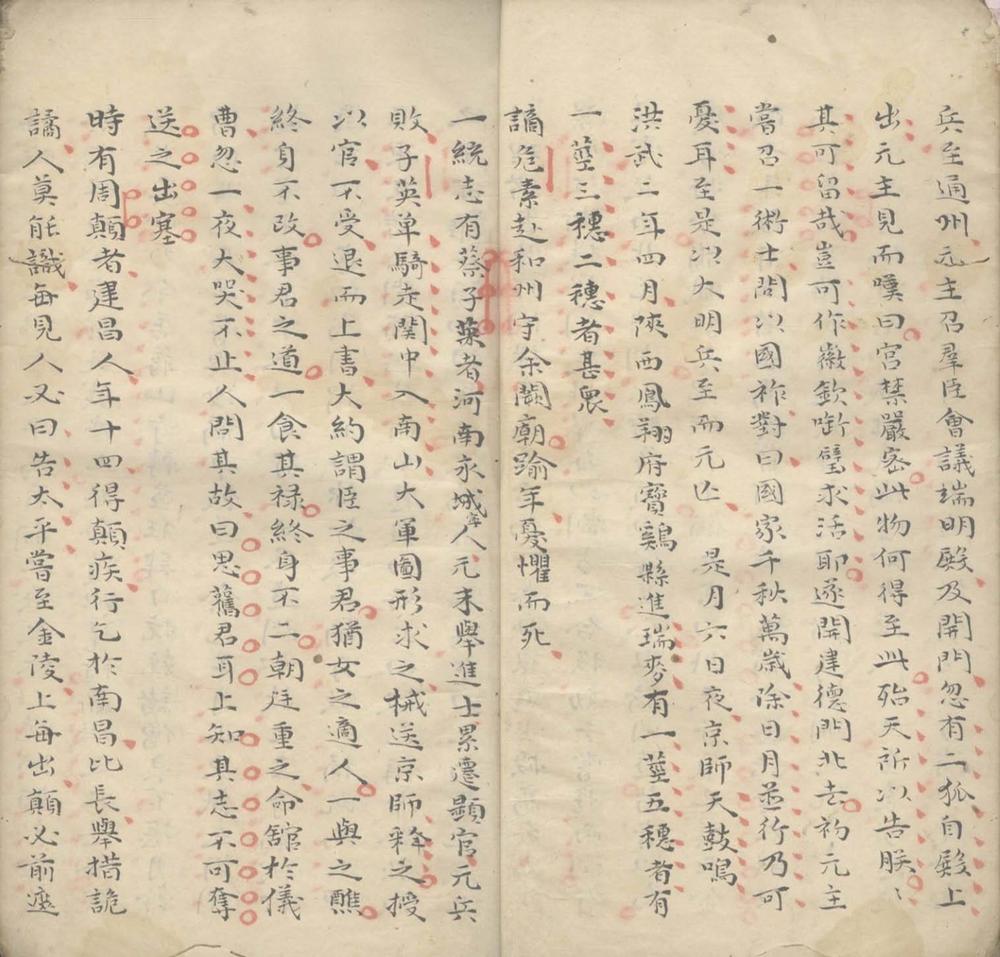 兵至通州元主召羣臣會議端明殿及開門忽有二狐自殿上
出元主見而嘆曰宮禁嚴密此物何得至此殆天所以告朕〻
其可留哉豈可作徽欽啣璧求活耶遂開建德門北去初元主
嘗召一術士問以國祚對曰國家千秋萬歲除日月並行乃可
憂耳至是以大明兵至而元亾　是月六日夜京師天鼓鳴
洪武二年四月陝西鳳翔府寶鷄縣進瑞麥有一莖五穗者有
一莖三穗二穗者甚衆
謫危素赴和州守余闕廟踰年憂懼而死
一統志有蔡子英者河南永城人元末舉進士累遷顯官元兵
敗子英单騎走関中入南山大軍圖形求之械送京師釋之授
以官不受退而上書大約謂臣之事君猶女之適人一與之醮
終身不改事君之道一食其禄終身不二朝廷重之命舘於儀
曹忽一夜大哭不止人問其故曰思舊君耳上知其志不可奪
送之出塞
時有周顛者建昌人年十四得顛疾行乞於南昌比長舉措詭
譎人莫能識每見人必曰告太平嘗至金陵上每出顛必前遮